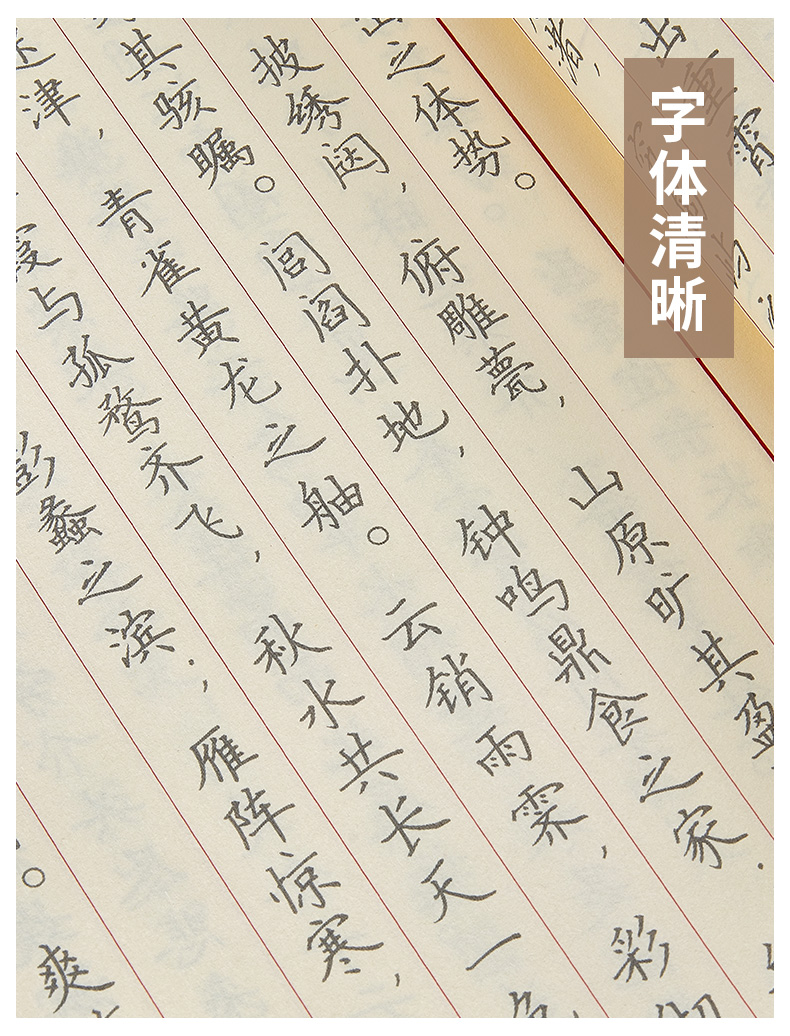 字体清晰
之体势。
披绣闼，俯雕甍，山原旷其盈
其骇瞩。闾阎扑地，钟鸣鼎食之家，
津，青雀黄龙之舳。云销雨霁，彩彻
霞与孤鹜齐飞，秋水共长天一色
彭蠡之滨，雁阵惊寒，
。爽